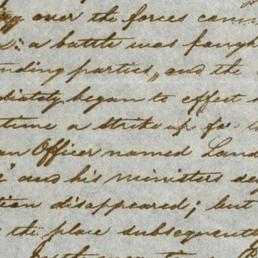 over the forces com
: a battle was fough
nding parties, and the
diately began to effect
time a strike up fo
an Officer named Land
" and his ministers de
tion disappeared; but
the place subsequent